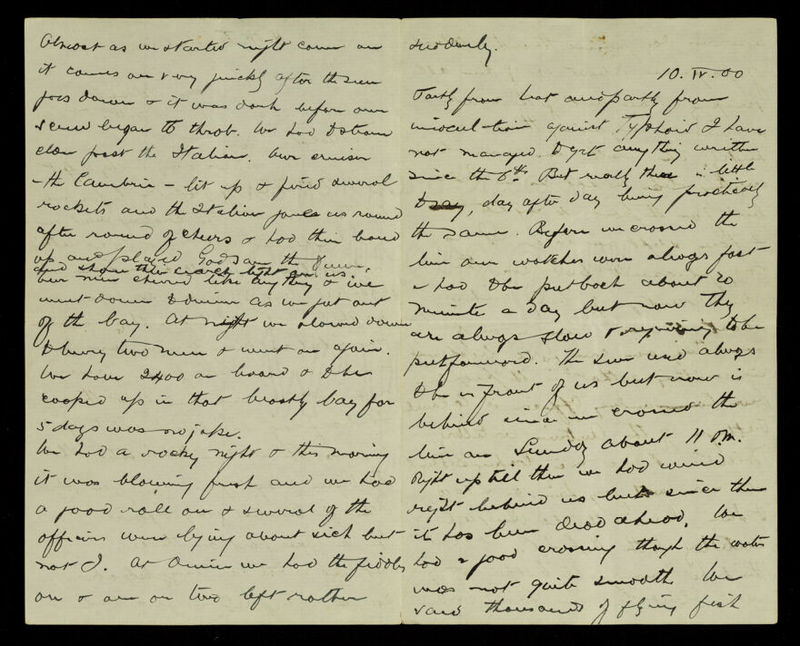 Almost as we started night came on
it comes on very quickly after the sun
goes down & it was dark before our
screw began to throb. We had to steam
close past the Italian. Our cruiser
– the Cambria – lit up & fired several
rockets and the Italian gave us round
after round of cheers & had their band
up and played God save the Queen,
and shone their search light on us.
our men cheered like anything & we
went down to dinner as we got out
of the bay. At night we slowed down
to bury two men & went on again.
We have 2400 on board & to be
cooped up in that beastly bay for
5 days was no joke.
We had a rocky night & this morning
it was blowing fresh and we had
a good roll on & several of the
officers were lying about sick but
not I. At Dinner we had the fiddles
on & one or two left rather
suddenly.
10. IV. 00
Partly from heat and partly from
inoculation against Typhoid I have
not managed to get anything written
since the 6th. But really there is little
to say, day after day being practically
the same. Before we crossed the
line our watches were always fast
& had to be put back about 20
minutes a day but now they
are always slow & requiring to be
put forward. The sun used always
to be in front of us but now is
behind since we crossed the
line on Sunday about 11 P.M.
Right up till then we had wind
right behind us but since then
it has been dead ahead. We
had a good crossing though the water
was not quite smooth. We
saw thousands of flying fish